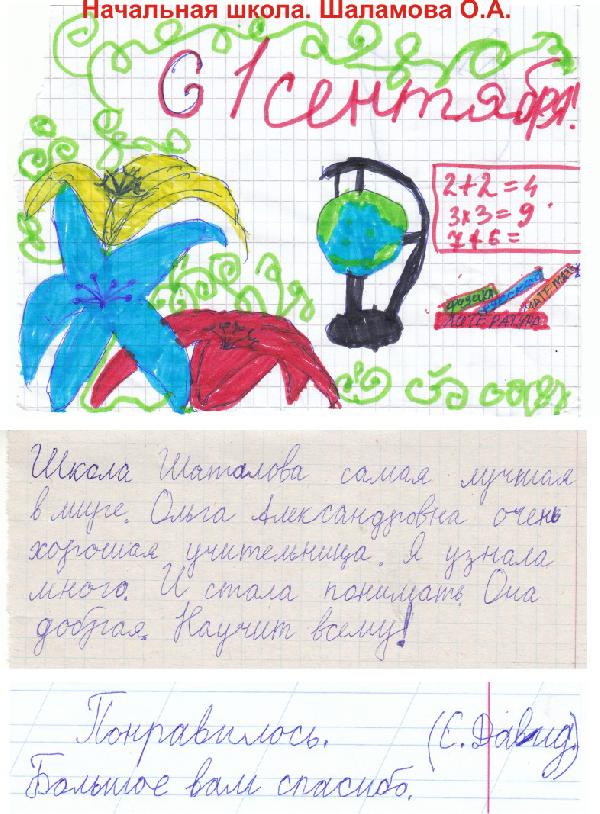 Начальная школа. Шаламова О.А.
С 1 сентября!
2+2=4
3x3=9
7+6=
физика
русский
МАТЕМАТИ
ЛИТЕРАТУРА
Школа Шаталова самая лучшая
в мире. Ольга Александровна очень
хорошая учительница. Я узнала
много. И стала понимать. Она
добрая. Научит всему!
Понравилось. (С. Давид)
Большое вам спасибо.